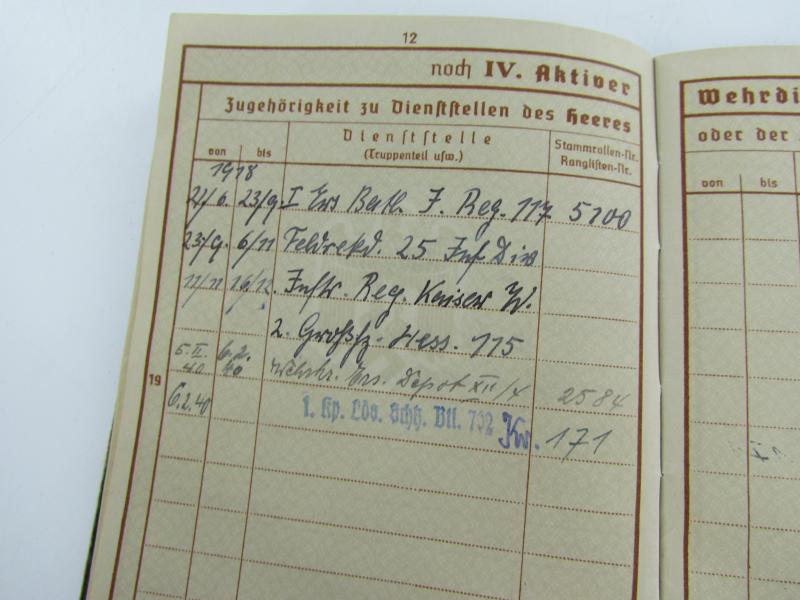 12
noch IV. Aktiver
Wehrdi
Zugehörigkeit zu Dienststellen des Heeres
oder der
von bis Dienststelle (Truppenteil usw.) Stammrollen-Nr. Ranglisten-Nr.
von bis
1918
21/6. 23/9. I Ers Batl. J. Reg. 117 5200
23/9. 6/11 Feldrekd. 25 Inf Div
11/11 16/12 Inftr. Reg. Kaiser W.
2. Großhz. Hess. 115
5.II. 40 6.2. 40 Wehrkr. Ers. Depot XII/4 2584
19
6.2.40 1. Kp. Lds. Schtz. Btl. 732 Kw. 171